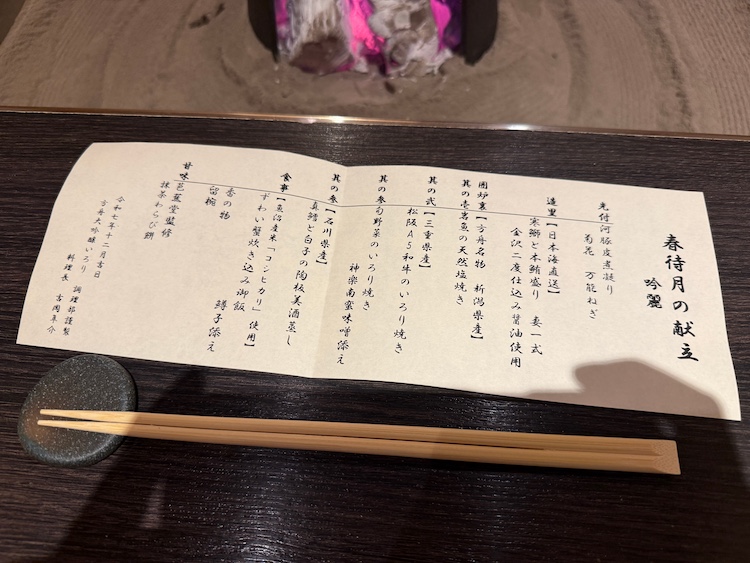 春待月の献立
吟麗
先付 河豚皮煮凝り
菊花 万能ねぎ
造里 【日本海直送】
寒鰤と本鮪盛り 妻一式
金沢二度仕込み醤油使用
囲炉裏 【方舟名物 新潟県産】
其の壱 岩魚の天然塩焼き
其の弐 【三重県産】
松阪A5和牛のいろり焼き
其の参 旬野菜のいろり焼き
神楽南蛮味噌添え
其の参 【石川県産】
真鱈と白子の陶板美酒蒸し
食事 【魚沼産米「コシヒカリ」使用】
ずわい蟹炊き込み御飯 鱒子添え
香の物
留椀
甘味 芭蕉堂監修
抹茶わらび餅
令和七年十二月吉日
方舟大吟醸いろり 調理部謹製
料理長 吉岡奉介